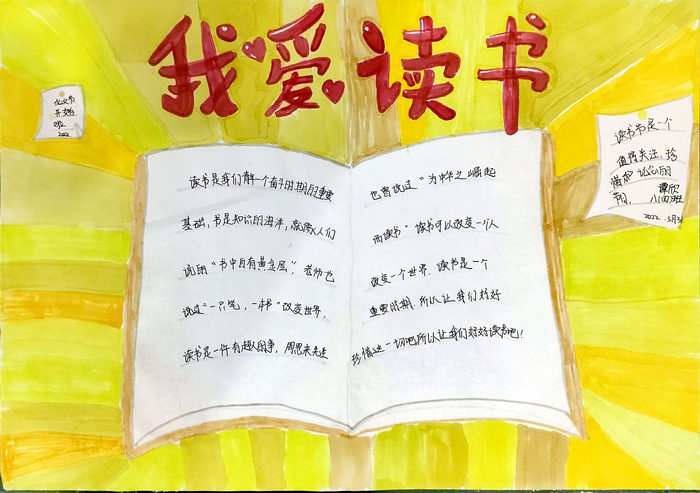 我爱读书
读书是我们每一个奋斗时期的重要
基础，书是知识的海洋，就像人们
说的"书中自有黄金屋"。老师也
说过"一只笔，一本书"改变世界，
读书是一件有趣的事，周恩来先生
也曾说过"为中华之崛起
而读书"读书可以改变一个人
改变一个世界．读书是一个
重要时期．所以让我们好好
珍惜这一切吧所以让我们好好读书吧！
读书节是一个
值得关注，珍
谭欣
八(四)班
2022．5月31
2022